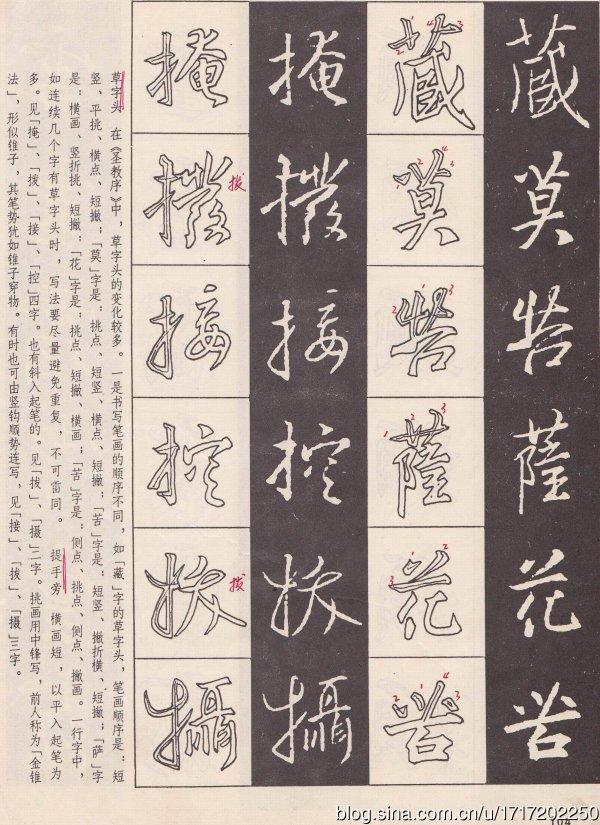 藏莫苦薩花苦
藏莫苦薩花苦
掩撥接控拔攝
掩撥接控拔攝
拨
拔
草字头 在《圣教序》中，草字头的变化较多。一是书写笔画的顺序不同，如「藏」字的草字头，笔画顺序是：短
竖、平挑、横点、短撇；「莫」字是：挑点、短竖、横点、短撇；「苦」字是：短竖、撇折横、短撇；「萨」字
是：横画、竖折挑、短撇；「花」字是：挑点、短撇、横画；「苦」字是：侧点、挑点、侧点、撇画。一行字中，
如连续几个字有草字头时，写法要尽量避免重复，不可雷同。 提手旁 横画短，以平入起笔为
多。见「掩」、「拨」、「接」、「控」四字。也有斜入起笔的。见「拔」、「摄」二字。挑画用中锋写，前人称为「金锥
法」，形似锥子，其笔势犹如锥子穿物。有时也可由竖钩顺势连写，见「接」、「拔」、「摄」三字。
104
blog.sina.com.cn/u/1717202250